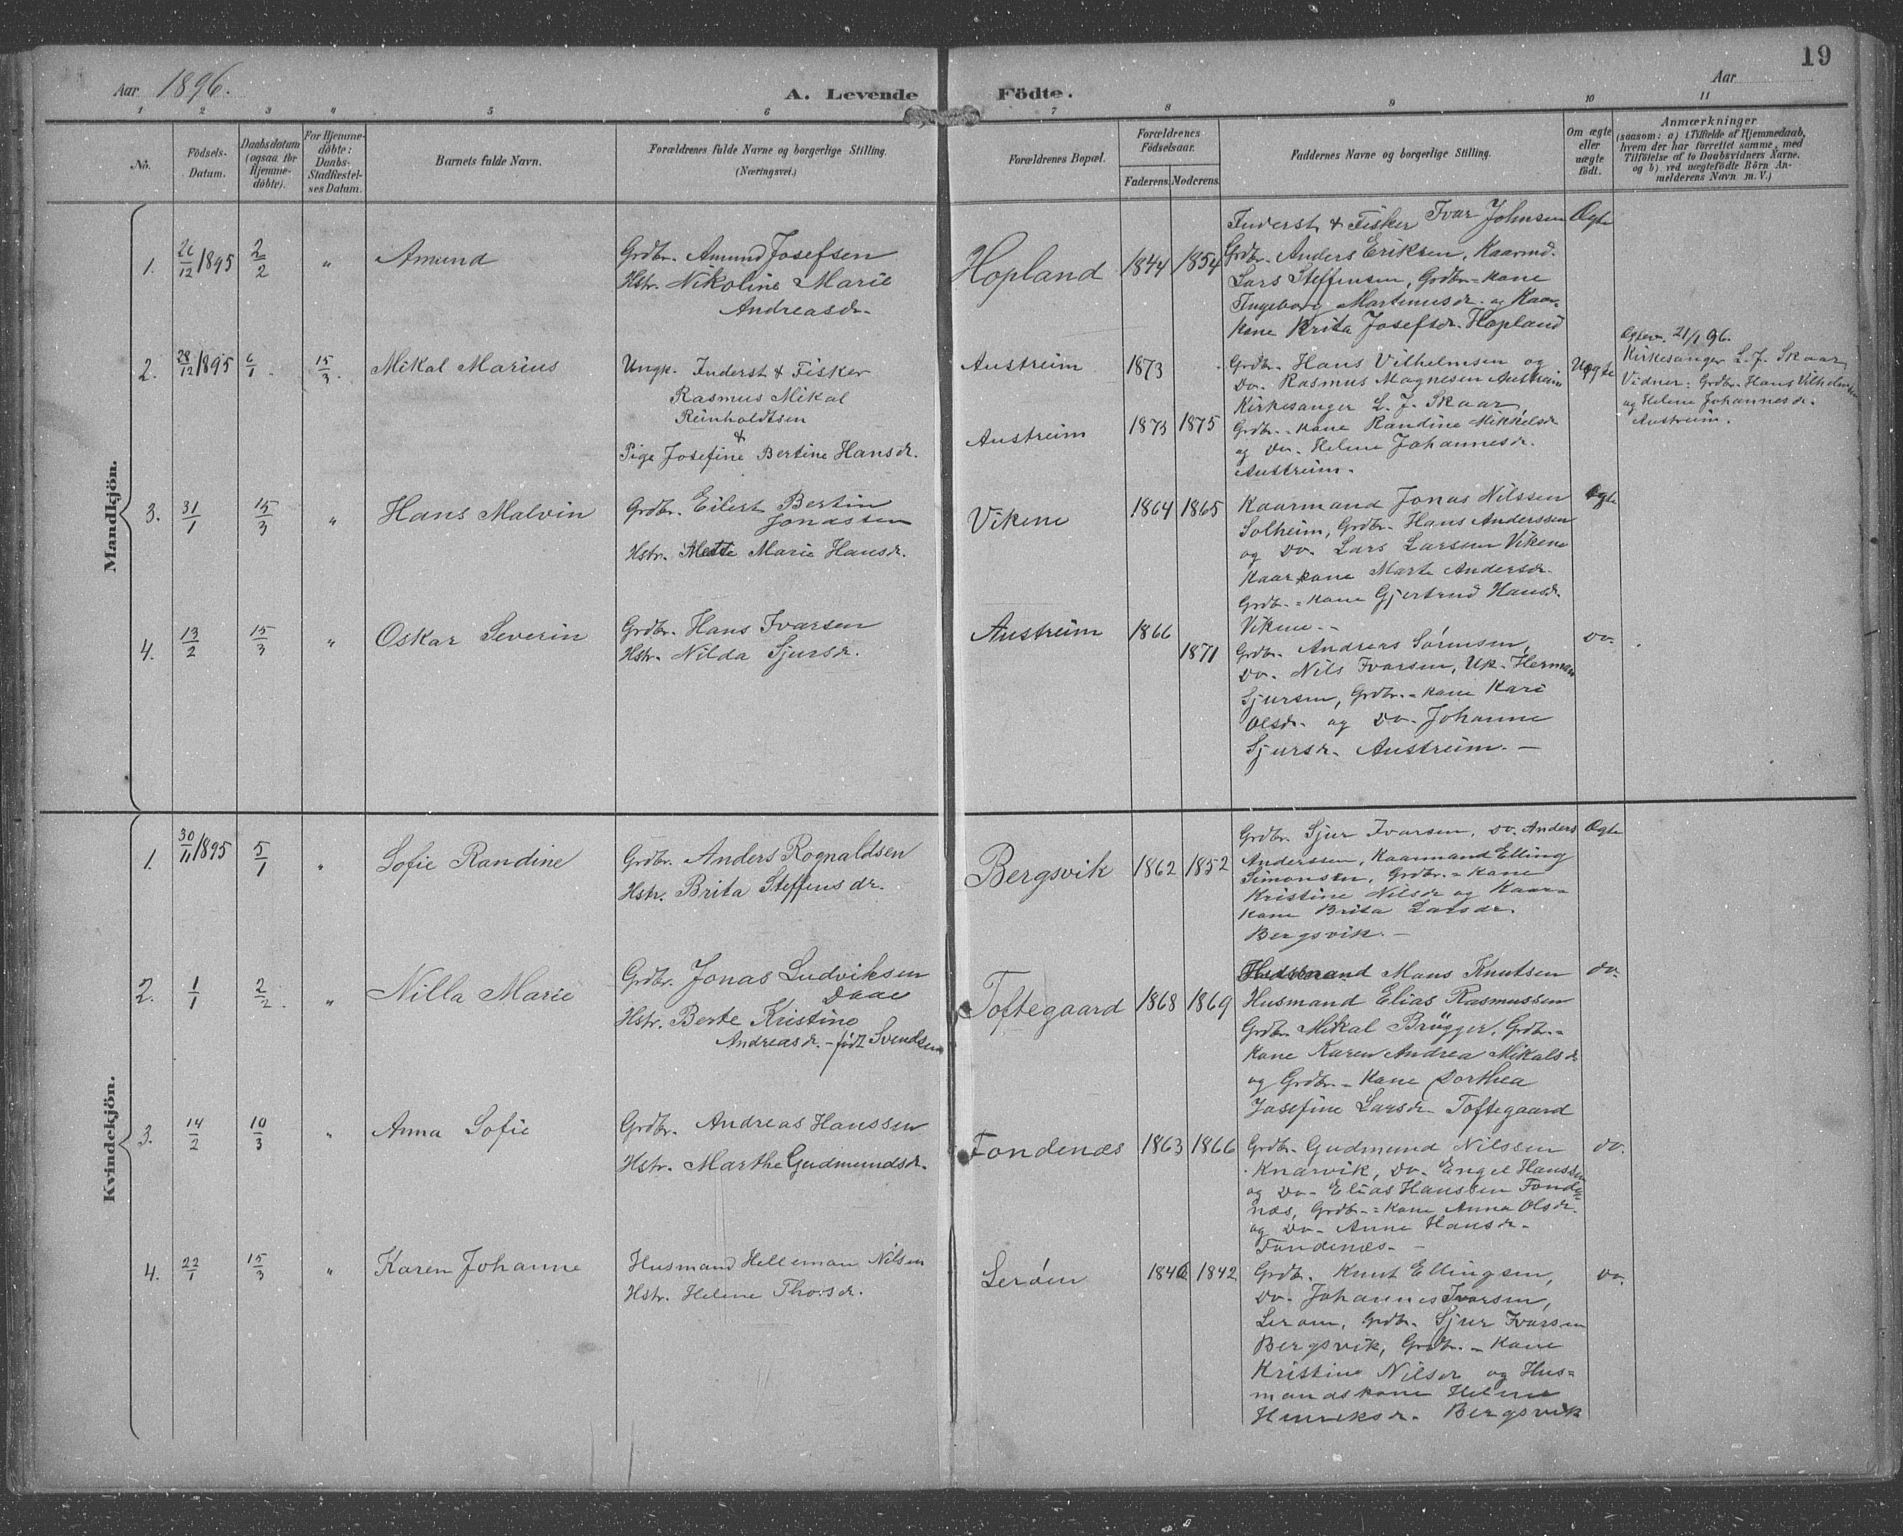 19
Aar 1896.
A. Levende Födte.
Aar
1 2 3 4 5 6 7 8 9 10 11
No.
Födsels-
Datum.
Daabsdatum
(ogsaa for
Hjemme-
döbte).
For Hjemme-
döbte:
Daabs-
Stadfæstel-
ses Datum.
Barnets fulde Navn.
Forældrenes fulde Navne og borgerlige Stilling.
(Næringsvei.)
Forældrenes Bopæl.
Forældrenes
Födselsaar.
Faderens. Moderens.
Faddernes Navne og borgerlige Stilling.
Om ægte
eller
uægte
födt.
Anmærkninger
(saasom: a) i Tilfælde af Hjemmedaab,
hvem der har forrettet samme, med
Tilföielse af to Daabsvidners Navne,
og b) ved uægtefödte Börn An-
melderens Navn m. V.)
Mandkjön.
1. 26/12 1895 2/2 " Amund
Grdbr. Amund Josefsen
Hstr. Nikoline Marie
Andreasdr.
Hopland 1844 1854
Inderst & Fisker Ivar Johnsen
Grdbr. Anders Eriksen, Kaarmd.
Lars Steffensen, Grdbr.-kone
Ingeborg Martinusdr. og Kaar-
kone Brita Josefsdr. Hopland
Ægte
2. 28/12 1895 6/1 15/3. Mikal Marius
Ungk. Inderst & Fisker
Rasmus Mikal
Reinholdtsen
&
Pige Josefine Bertine Hansdr.
Austreim 1873
Austreim 1873 1875
Grdbr. Hans Vilhelmsen og
Do. Rasmus Magnesen Austreim
Kirkesanger L. J. Skaar,
Grdbr.-kone Randine Mikkelsdr
og Do. Helene Johannesdr.
Austreim.
Uægte
21/1 96.
Kirkesanger L. J. Skaar
Vidner: Grdbr. Hans Vilhelmsen
og Helene Johannesdr.
Austreim.
3. 31/1 15/3 " Hans Malvin
Grdbr. Eilert Bertin
Jonassen
Hstr. Mette Marie Hansdr.
Vikene 1864 1865
Kaarmand Jonas Nilssen
Solheim, Grdbr. Hans Anderssen
og Do. Lars Larsen Vikene
Kaarkone Marte Andersdr.
Grdbr.-kone Gjertrud Hansdr.
Vikene.-
Ægte
4. 13/2 15/3 " Oskar Severin
Grdbr. Hans Ivarsen
Hstr. Nilda Sjursdr.
Austreim 1866
1871
Grdbr. Andreas Sørensen,
Do. Nils Ivarsen, Uk. Herman
Sjursen, Grdbr.-kone Kari
Olsdr. og Do. Johanne
Sjursdr. Austreim. -
Do.
Kvindekjön.
1. 30/11 1895 5/1 " Sofie Randine
Grdbr. Anders Rognaldsen
Hstr. Brita Steffensdr.
Bergsvik 1862 1852
Grdbr. Sjur Ivarsen, Do. Anders
Anderssen, Kaarmand Elling
Simonsen, Grdbr.-kone
Kristine Nilsdr og Kaar-
kone Brita Larsdr.
Bergsvik. -
Ægte
2. 1/1 2/2. " Nilla Marie
Grdbr. Jonas Ludviksen
Daae
Hstr. Berte Kristine
Andreasdr. - født Svendsen
Toftegaard 1868 1869
Mons Knutsen
Husmand Elias Rasmussen
Grdbr. Mikal Brügger, Grdbr.-
kone Karen Andrea Mikalsdr
og Grdbr.-kone Dorthea
Josefine Larsdr. Toftegaard
Do.
3. 14/2 10/3 " Anna Sofie
Grdbr. Andreas Hanssen
Hstr. Marthe Gudmundsdr.
Fondenæs 1863 1866
Grdbr. Gudmund Nilssen
Knarvik, Do. Engel Hanssen
og Do. Elias Hanssen Fonde-
næs, Grdbr.-kone Anna Olsdr.
og Do. Anne Hansdr.
Fondenæs. -
Do.
4. 22/1 15/3 " Karen Johanne
Husmand Helleman Nilsen
Hstr. Helene Thorsdr.
Lerøen 1842
Grdbr. Knut Ellingsen,
Do. Johannes Ivarsen,
Lerøen, Grdbr. Sjur Ivarsen
Bergsvik, Grdbr.-kone
Kristine Nilsdr og Hus-
mandskone Helene
Henriksdr. Bergsvik
Do.